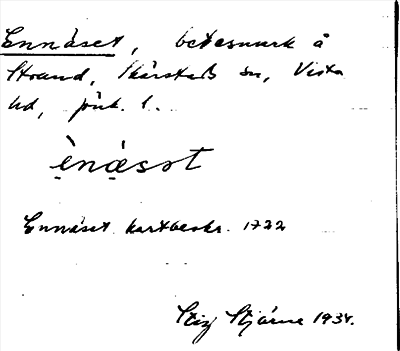 Ennäset, betesmark å
Strand, Skärstads sn, Vista
hd, Jönk. l.
ènǽsət
Ennäset kartbeskr. 1722
Stig Stjärne 1934.